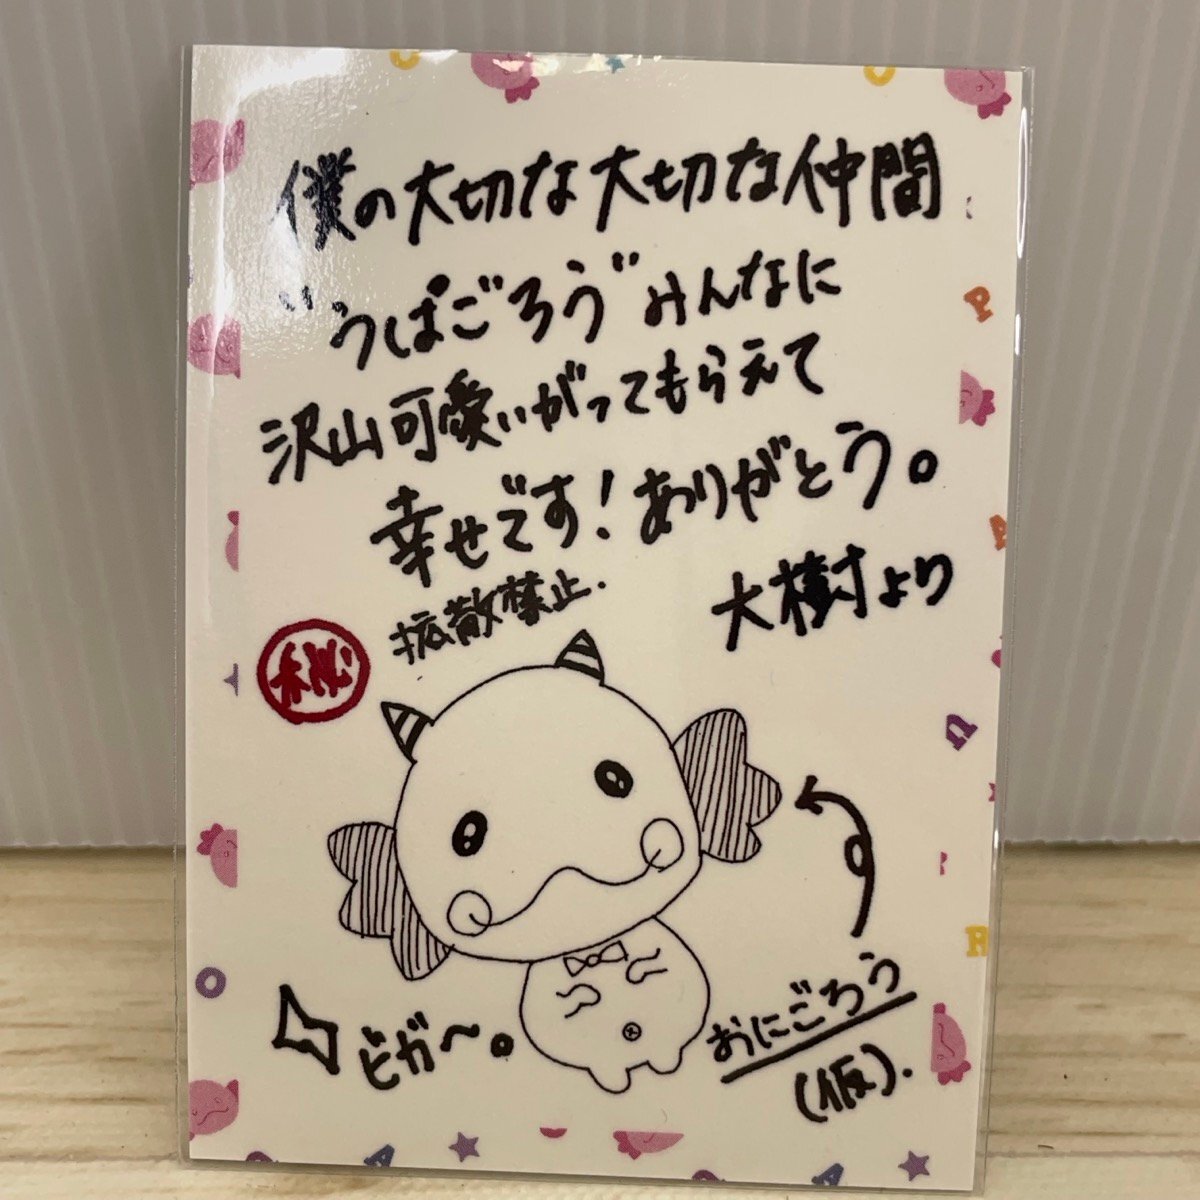 僕の大切な大切な仲間
"うぱごろう"みんなに
沢山可愛いがってもらえて
幸せです！ありがとう。
大樹より
拡散禁止.
秘
ビガ〜。
おにごろう
(仮).